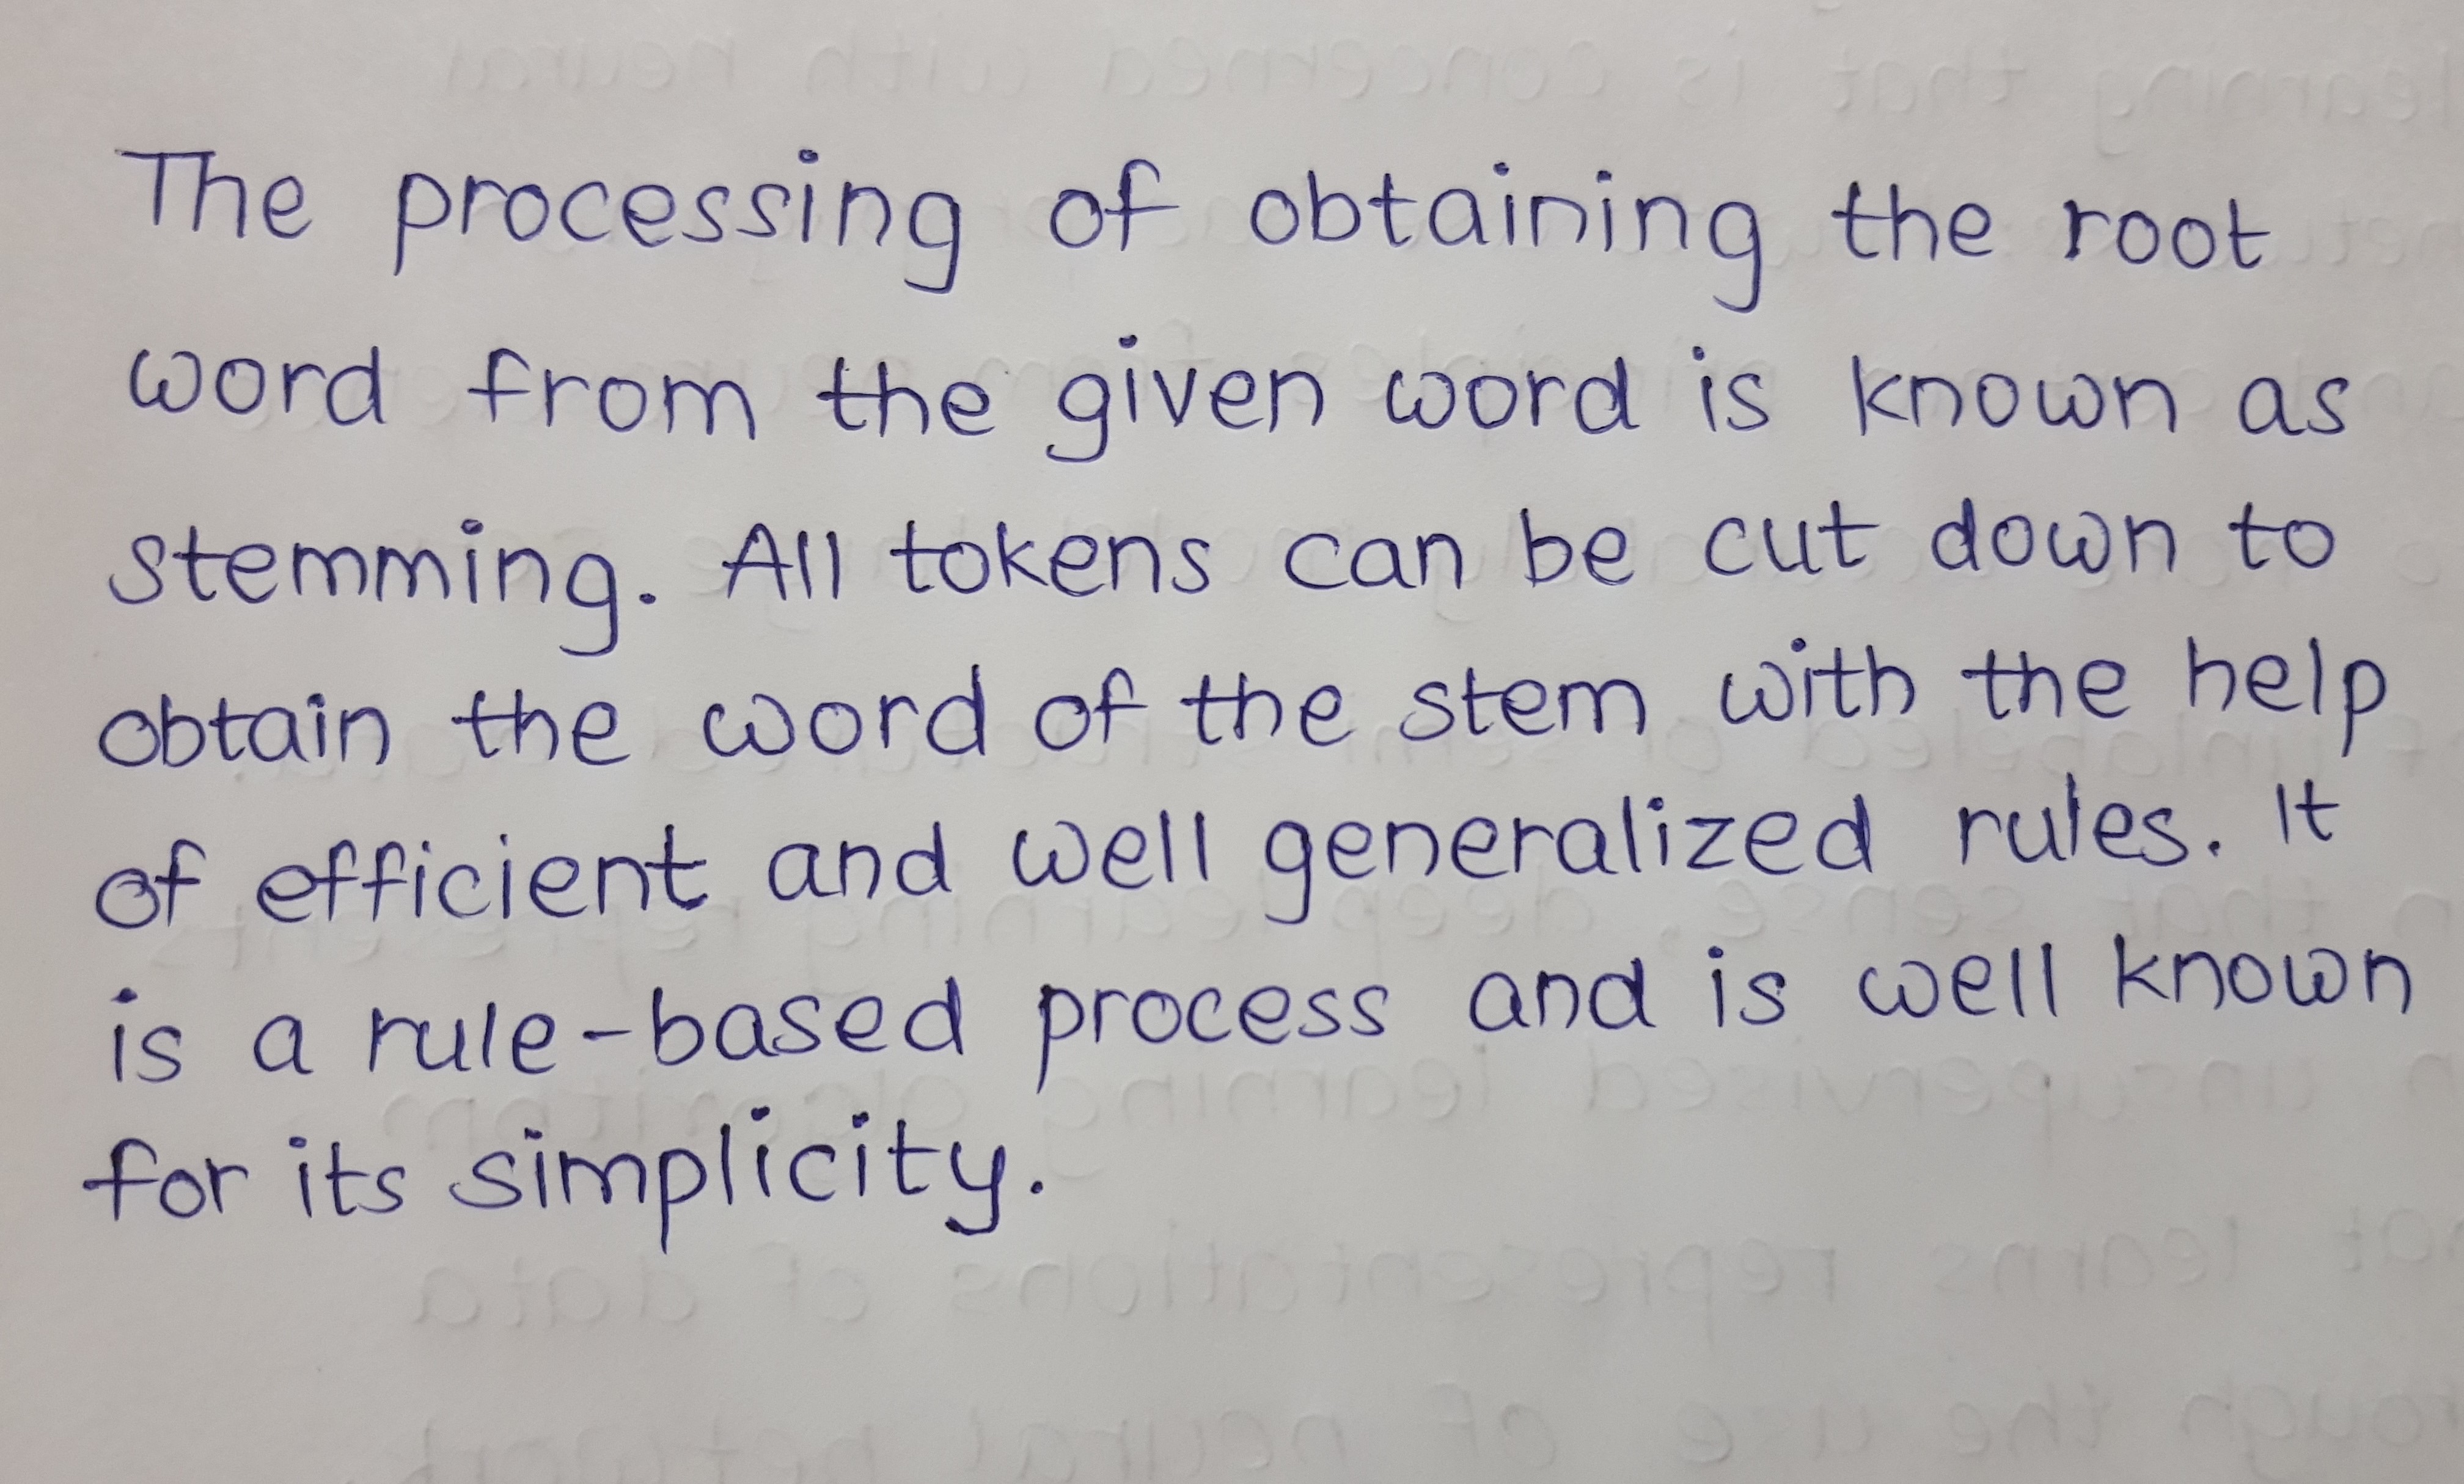 The processing of obtaining the root
word from the given word is known as
stemming. All tokens can be cut down to
obtain the word of the stem with the help
of efficient and well generalized rules. It
is a rule-based process and is well known
for its simplicity.